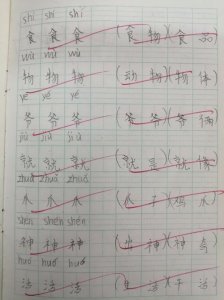 shí shí shí
食 食 食 (食物)(食品)
wù wù wù
物 物 物 (动物)(物体)
yé yé yé
爷 爷 爷 (爷爷)(爷俩)
jiù jiù jiù
就 就 就 (就是)(就像)
zhuǎ zhuǎ zhuǎ
爪 爪 爪 (爪子)(鸡爪)
shén shén shén
神 神 神 (出神)(神奇)
huó huó huó
活 活 活 (生活)(干活)